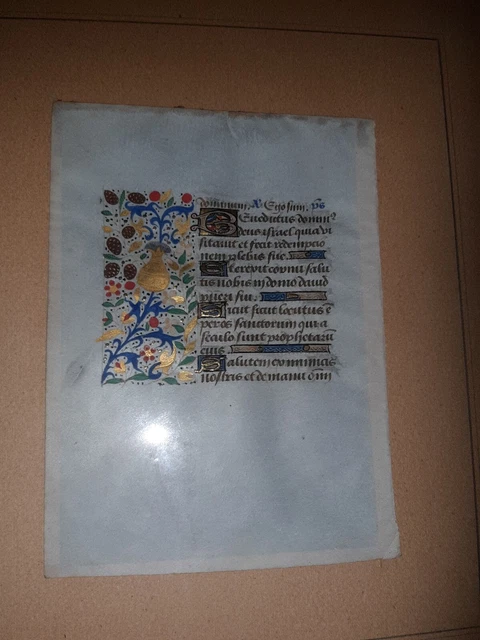 dominum. Ã Sijo sinu. ps
Benedictus dominꝰ
deus israel quia vi
sitauit et fecit redemptio
nem plebis sue.
Et erexit cornu salu
tis nobis in domo dauid
pueri sui.
Sicut ficut locutus e
per os sanctorum qui a
seculo sunt prophetarū
eius.
Salutem ex inimicis
nostris et de manu oīm